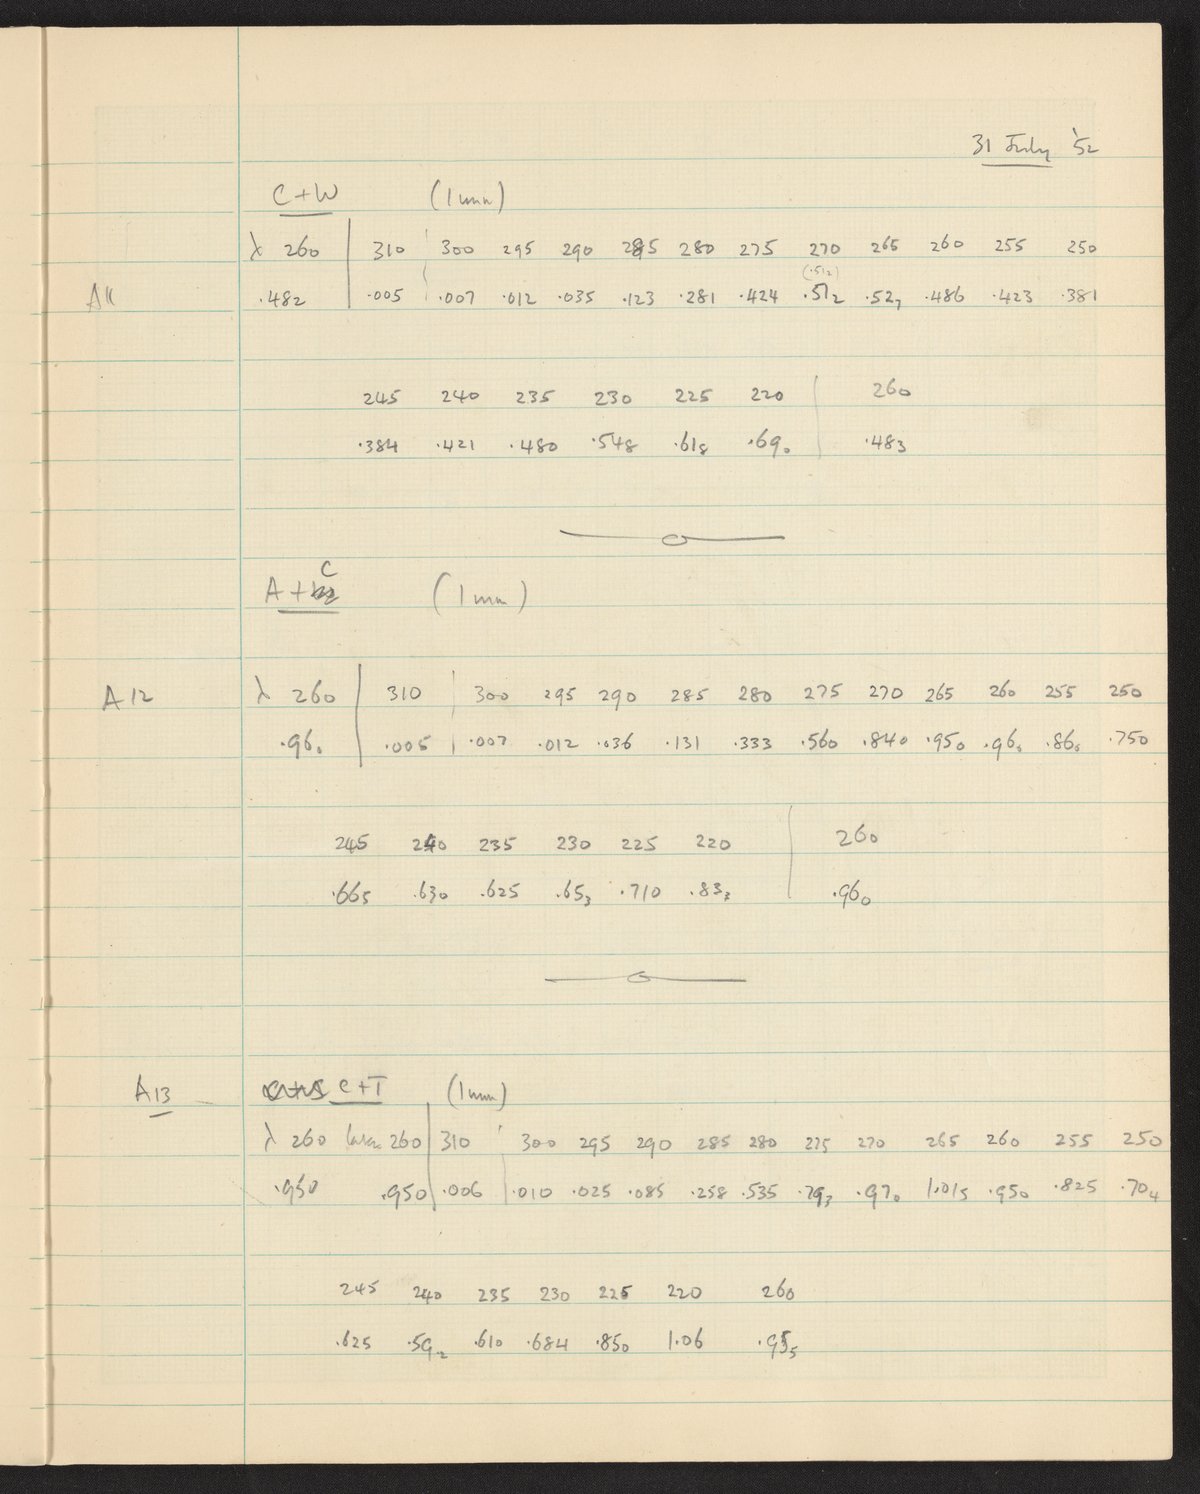 31 July '52
C+W (1 mm)
λ 260 310 300 295 290 285 280 275 270 265 260 255 250
(.512)
A11 .482 .005 .007 .012 .035 .123 .281 .424 .512 .527 .486 .423 .381
245 240 235 230 225 220 260
.384 .421 .480 .548 .618 .690 .483
A + C (1 mm)
A12 λ 260 310 300 295 290 285 280 275 270 265 260 255 250
.960 .005 .007 .012 .036 .131 .333 .560 .840 .950 .960 .860 .750
245 240 235 230 225 220 260
.665 .630 .625 .653 .710 .832 .960
A13 C+T (1 mm)
λ 260 260 310 300 295 290 285 280 275 270 265 260 255 250
.950 .950 .006 .010 .025 .085 .258 .535 .793 .970 1.015 .950 .825 .704
245 240 235 230 225 220 260
.625 .592 .610 .684 .850 1.06 .955